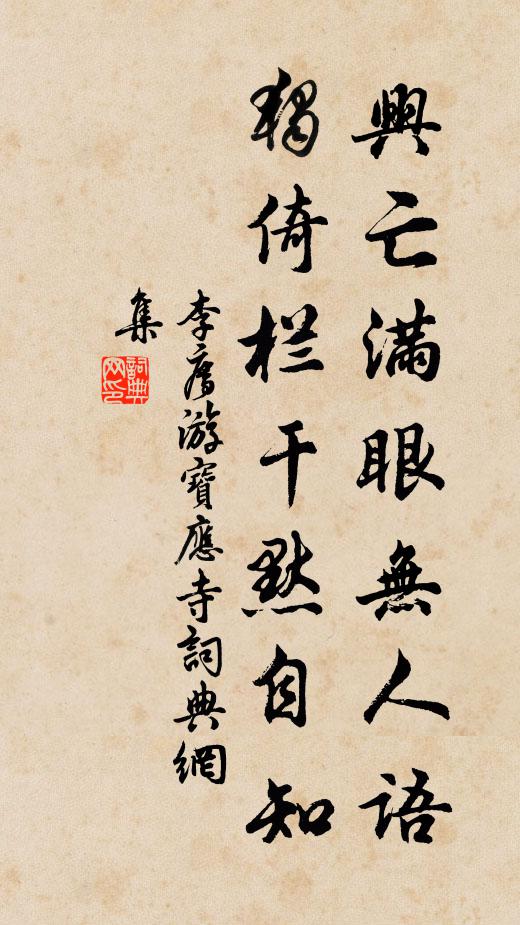 興亡滿眼無人語
獨倚栏干默自知
李廌游寶應寺詞典網
集
詞典
网印